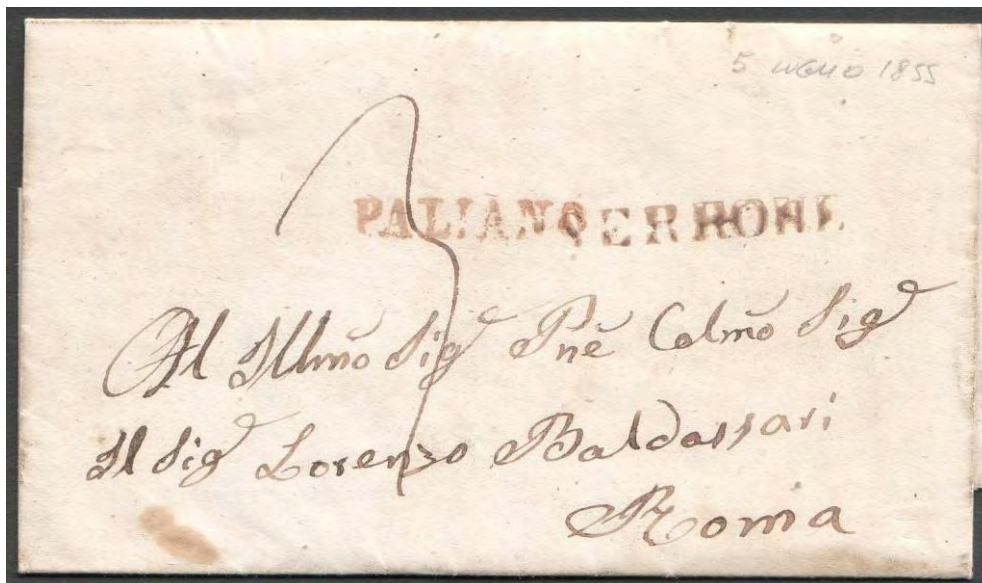 5 LUGLIO 1855
3
PALIANO
Al Illmõ Sig.e Pnẽ Colmõ Sig.e
Il Sig.e Lorenzo Baldassari
Roma